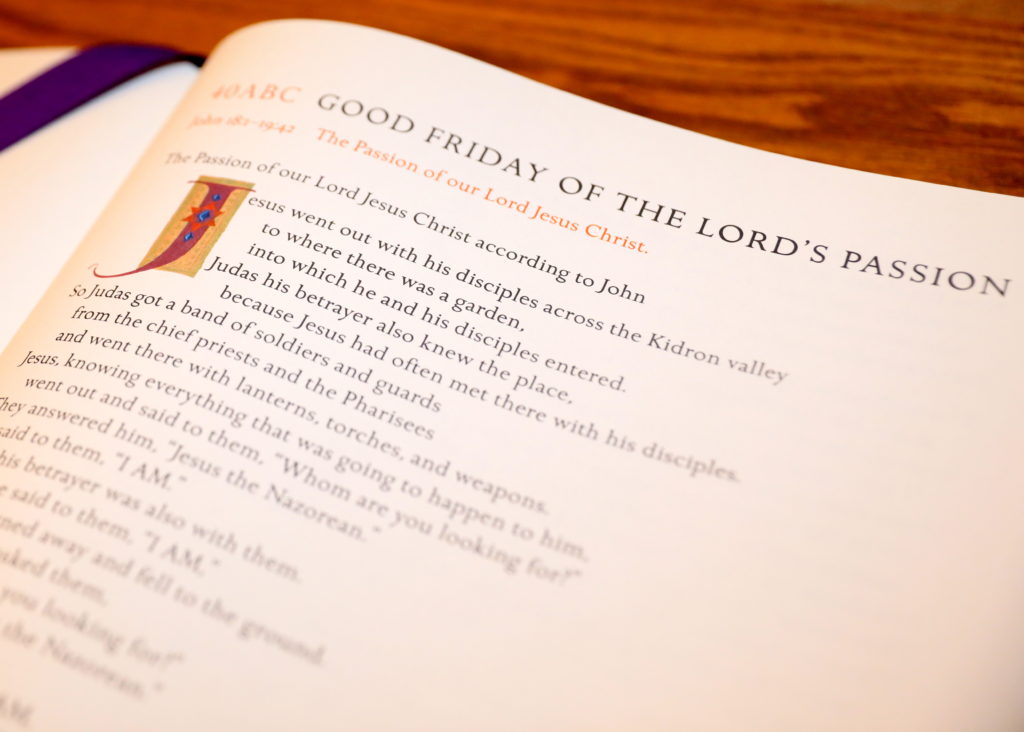 40ABC GOOD FRIDAY OF THE LORD'S PASSION
John 18:1–19:42 The Passion of our Lord Jesus Christ.
The Passion of our Lord Jesus Christ according to John
Jesus went out with his disciples across the Kidron valley
to where there was a garden,
into which he and his disciples entered.
Judas his betrayer also knew the place,
because Jesus had often met there with his disciples.
So Judas got a band of soldiers and guards
from the chief priests and the Pharisees
and went there with lanterns, torches, and weapons.
Jesus, knowing everything that was going to happen to him,
went out and said to them, "Whom are you looking for?"
They answered him, "Jesus the Nazorean."
said to them, "I AM."
his betrayer was also with them.
said to them, "I AM,"
away and fell to the ground.
them,
you looking for?"
the Nazorean."